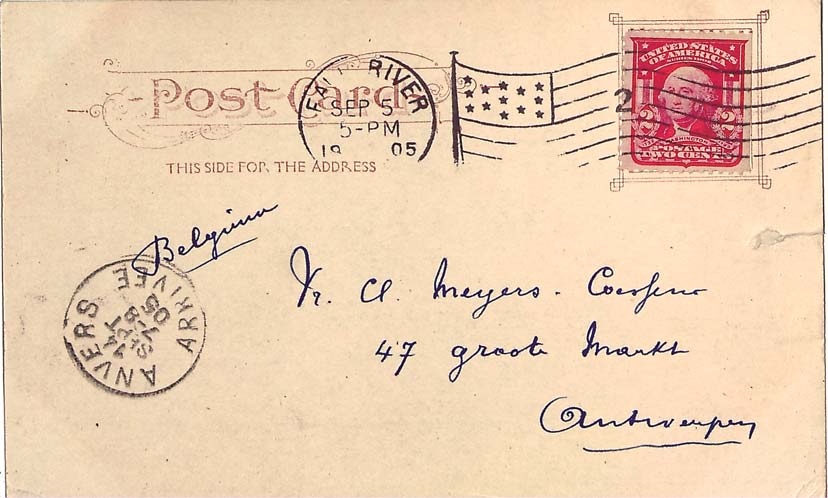 Post Card
FALL RIVER
SEP 5
5-PM
19 05
2
UNITED STATES
OF AMERICA
SERIES 1902
2 2
WASHINGTON
POSTAGE
TWO CENTS
THIS SIDE FOR THE ADDRESS
Belgium
ANVERS ARRIVEE
14
SEPT
8
05
Fr. A. Meyers -
47 groote Markt
Antwerpen